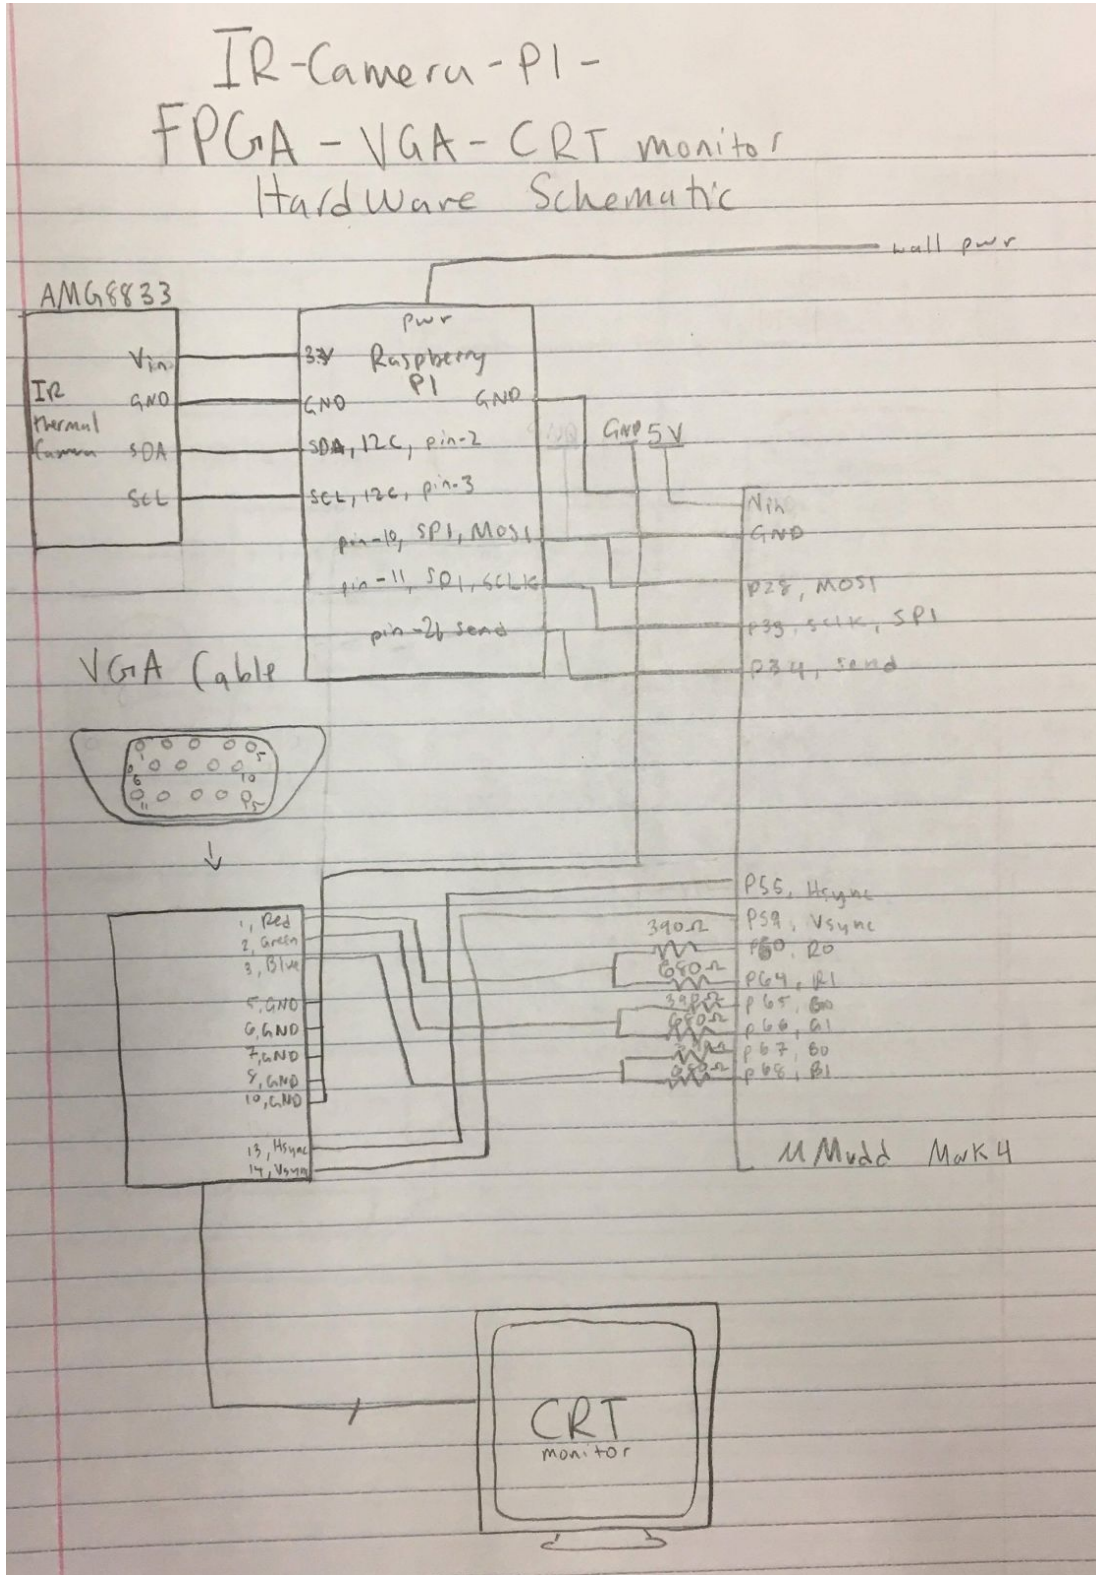 IR-Camera-PI-
FPGA-VGA-CRT monitor
HardWare Schematic
wall pwr
AMG8833
Vin
GND
SDA
SCL
IR
thermal
Camera
pwr
Raspberry
PI
3.3V
GND
GND
SDA, I2C, pin-2
SCL, I2C, pin-3
pin-10, SPI, MOSI
pin-11, SPI, SCLK
pin-26 send
GND 5V
Vin
GND
P28, MOSI
P39, SCLK, SPI
P34, send
VGA Cable
1
5
6
10
11
15
1, Red
2, Green
3, Blue
5, GND
6, GND
7, GND
8, GND
10, GND
13, Hsync
14, Vsync
P55, Hsync
P59, Vsync
390Ω
P60, R0
680Ω
P64, R1
390Ω
P65, G0
680Ω
P66, G1
390Ω
P67, B0
680Ω
P68, B1
μMudd Mark 4
CRT
monitor